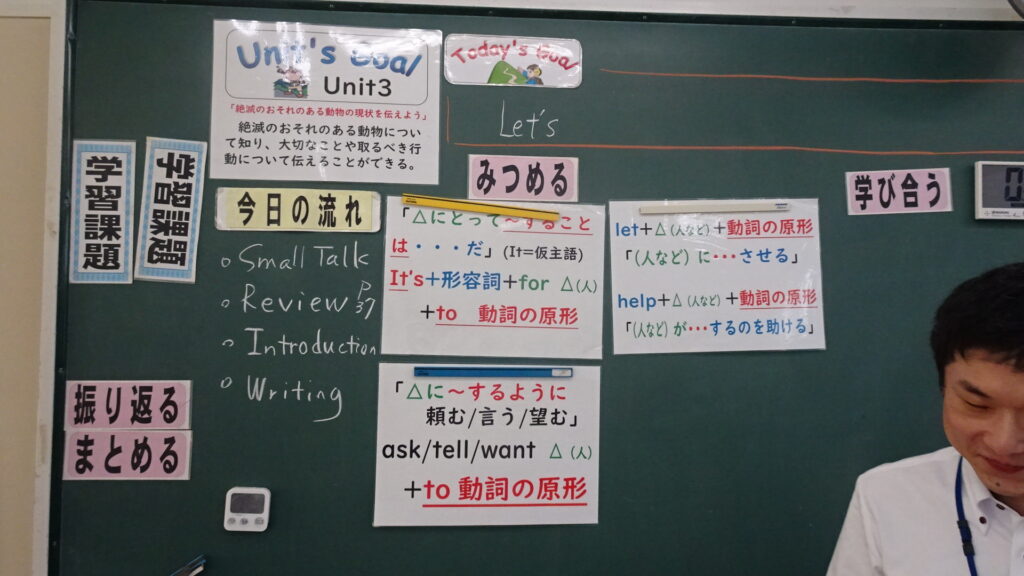 Unit's Goal
Unit3
「絶滅のおそれのある動物の現状を伝えよう」
絶滅のおそれのある動物につい
て知り、大切なことや取るべき行
動について伝えることができる。
Today's Goal
Let's
学習課題
学習課題
今日の流れ
Small Talk
Review P37
Introduction
Writing
振り返る
まとめる
みつめる
「△にとって～すること
は・・・だ」(It=仮主語)
It's+形容詞+for △(人)
+to 動詞の原形
「△に～するように
頼む/言う/望む」
ask/tell/want △(人)
+to 動詞の原形
let+△(人など)+動詞の原形
「(人など)に・・・させる」
help+△(人など)+動詞の原形
「(人など)が・・・するのを助ける」
学び合う